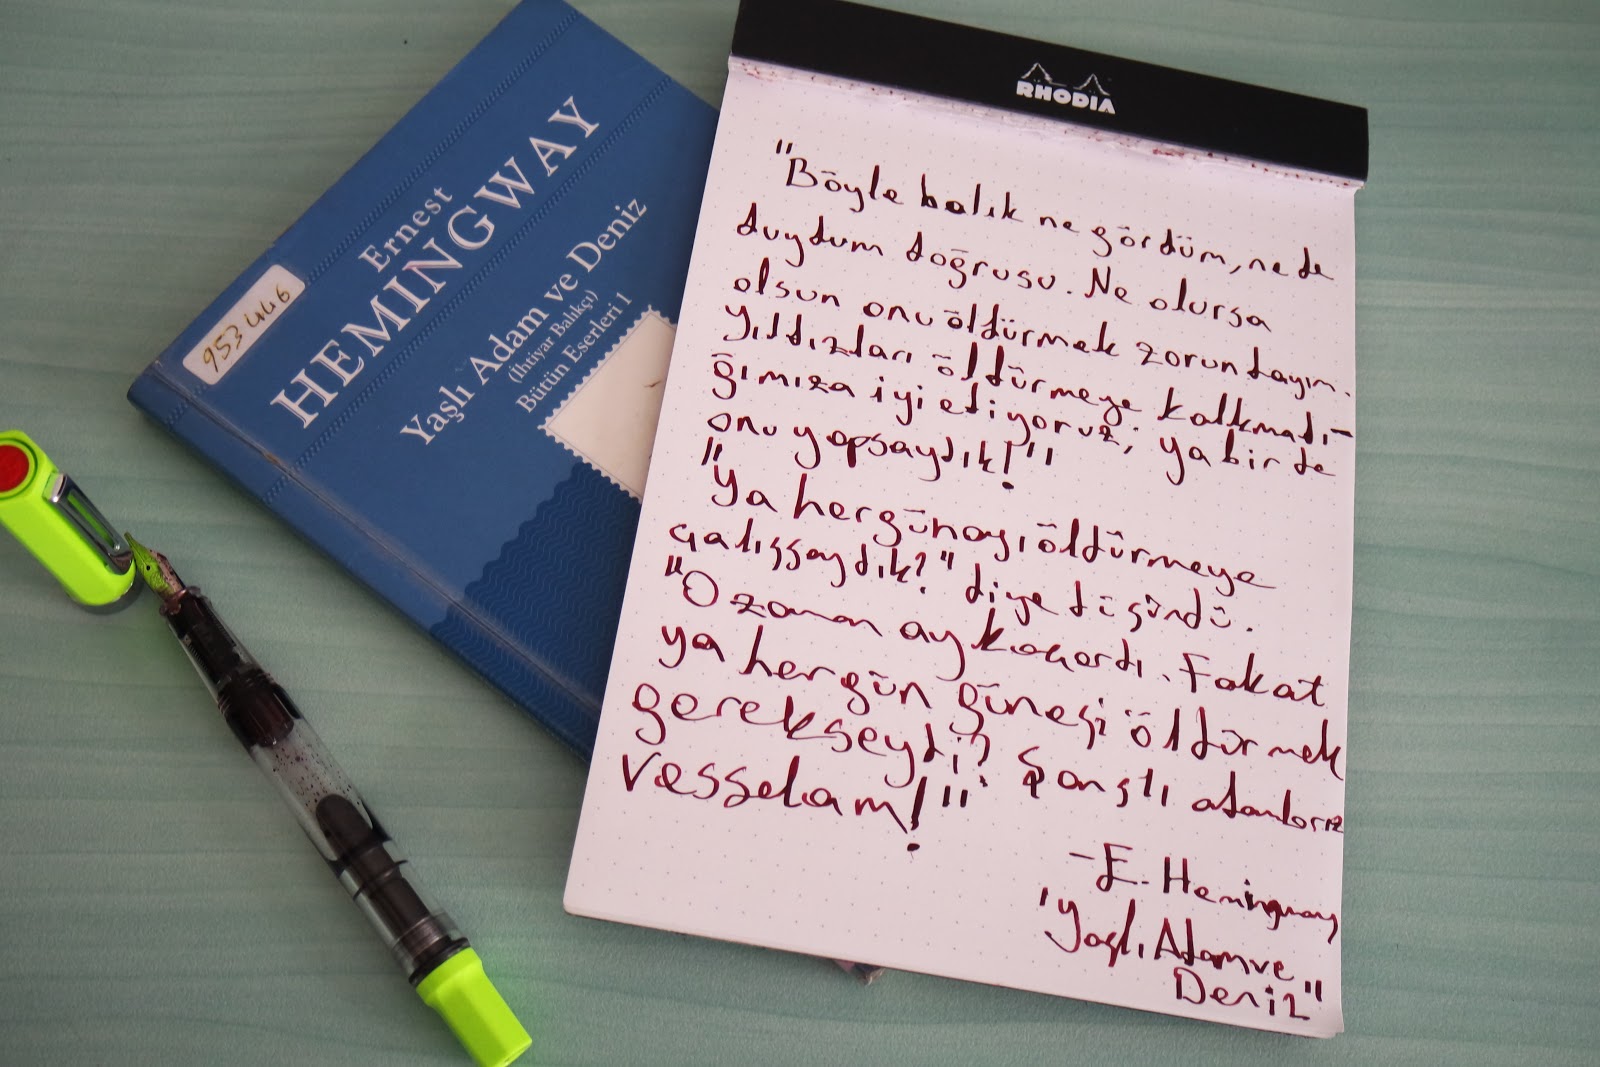 Ernest
HEMINGWAY
Yaşlı Adam ve Deniz
(İhtiyar Balıkçı)
Bütün Eserleri 1
953446
RHODIA
"Böyle balık ne gördüm, ne de
duydum doğrusu. Ne olursa
olsun onu öldürmek zorundayım.
Yıldızları öldürmeye kalkmadı-
ğımıza iyi ediyoruz; ya bir de
onu yapsaydık!"
"Ya hergün ayı öldürmeye
çalışsaydık?" diye düşündü.
"O zaman ay kaçardı. Fakat
ya hergün güneşi öldürmek
gerekseydi? Şanslı adamlarız
vesselam!"
-E. Hemingway
"Yaşlı Adam ve
Deniz"